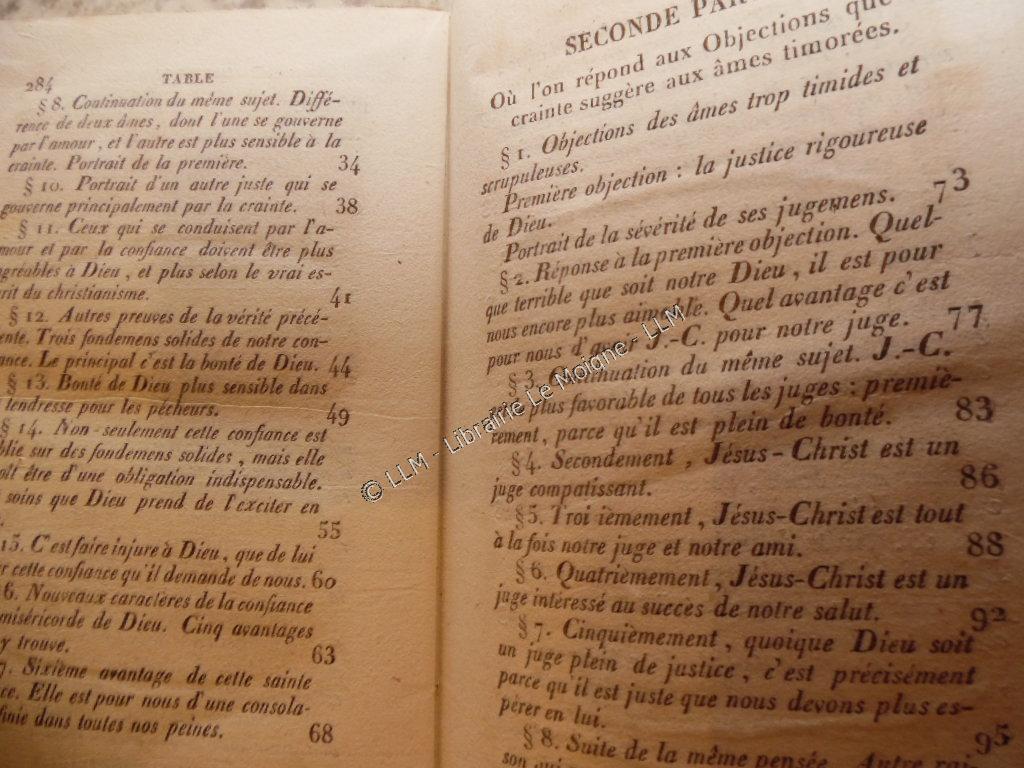 284
TABLE
§ 8. Continuation du même sujet. Diffé-
rence de deux âmes, dont l'une se gouverne
par l'amour, et l'autre est plus sensible à la
crainte. Portrait de la première. 34
§ 10. Portrait d'un autre juste qui se
gouverne principalement par la crainte. 38
§ 11. Ceux qui se conduisent par l'a-
mour et par la confiance doivent être plus
agréables à Dieu, et plus selon le vrai es-
rit du christianisme. 41
§ 12. Autres preuves de la vérité précé-
ente. Trois fondemens solides de notre con-
ance. Le principal c'est la bonté de Dieu. 44
§ 13. Bonté de Dieu plus sensible dans
tendresse pour les pécheurs. 49
§ 14. Non-seulement cette confiance est
blie sur des fondemens solides, mais elle
oît être d'une obligation indispensable.
soins que Dieu prend de l'exciter en
55
15. C'est faire injure à Dieu, que de lui
er cette confiance qu'il demande de nous. 60
6. Nouveaux caractères de la confiance
miséricorde de Dieu. Cinq avantages
y trouve. 63
7. Sixième avantage de cette sainte
ce. Elle est pour nous d'une consola-
finie dans toutes nos peines. 68
SECONDE PAR
Où l'on répond aux Objections que
crainte suggère aux âmes timorées.
§ 1. Objections des âmes trop timides et
scrupuleuses.
Première objection : la justice rigoureuse
de Dieu.
Portrait de la sévérité de ses jugemens. 73
§ 2. Réponse à la première objection. Quel-
que terrible que soit notre Dieu, il est pour
nous encore plus aimable. Quel avantage c'est
pour nous d'avoir J.-C. pour notre juge. 77
§ 3. Continuation du même sujet. J.-C.
plus favorable de tous les juges : premiè-
rement, parce qu'il est plein de bonté. 83
§ 4. Secondement, Jésus-Christ est un
juge compatissant. 86
§ 5. Troi ièmement, Jésus-Christ est tout
à la fois notre juge et notre ami. 88
§ 6. Quatrièmement, Jésus-Christ est un
juge intéressé au succès de notre salut. 92
§ 7. Cinquièmement, quoique Dieu soit
un juge plein de justice, c'est précisément
parce qu'il est juste que nous devons plus es-
pérer en lui. 95
§ 8. Suite de la même pensée. Autre rai-
son qui
© LLM - Librairie Le Moigne - LLM